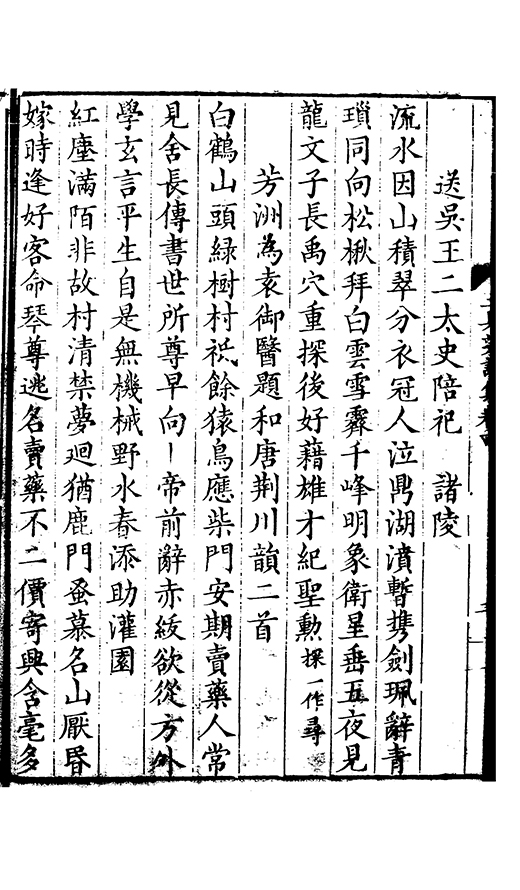 送吳王二太史陪祀　諸陵
流水因山積翠分衣冠人泣鼎湖濆暫携劍珮辭青
瑣同向松楸拜白雲雪霽千峰明象衛星垂五夜見
龍文子長禹穴重探後好藉雄才紀聖勳探一作尋
芳洲為袁御醫題和唐荆川韻二首
白鶴山頭綠樹村祇餘猿鳥應柴門安期賣藥人常
見舍長傳書世所尊早向丨帝前辭赤紱欲從方外
學玄言平生自是無機械野水春添助灌園
紅塵滿陌非故村清禁夢廻猶鹿門蚤慕名山厭昏
嫁時逢好客命琴尊逃名賣藥不二價寄興含毫多